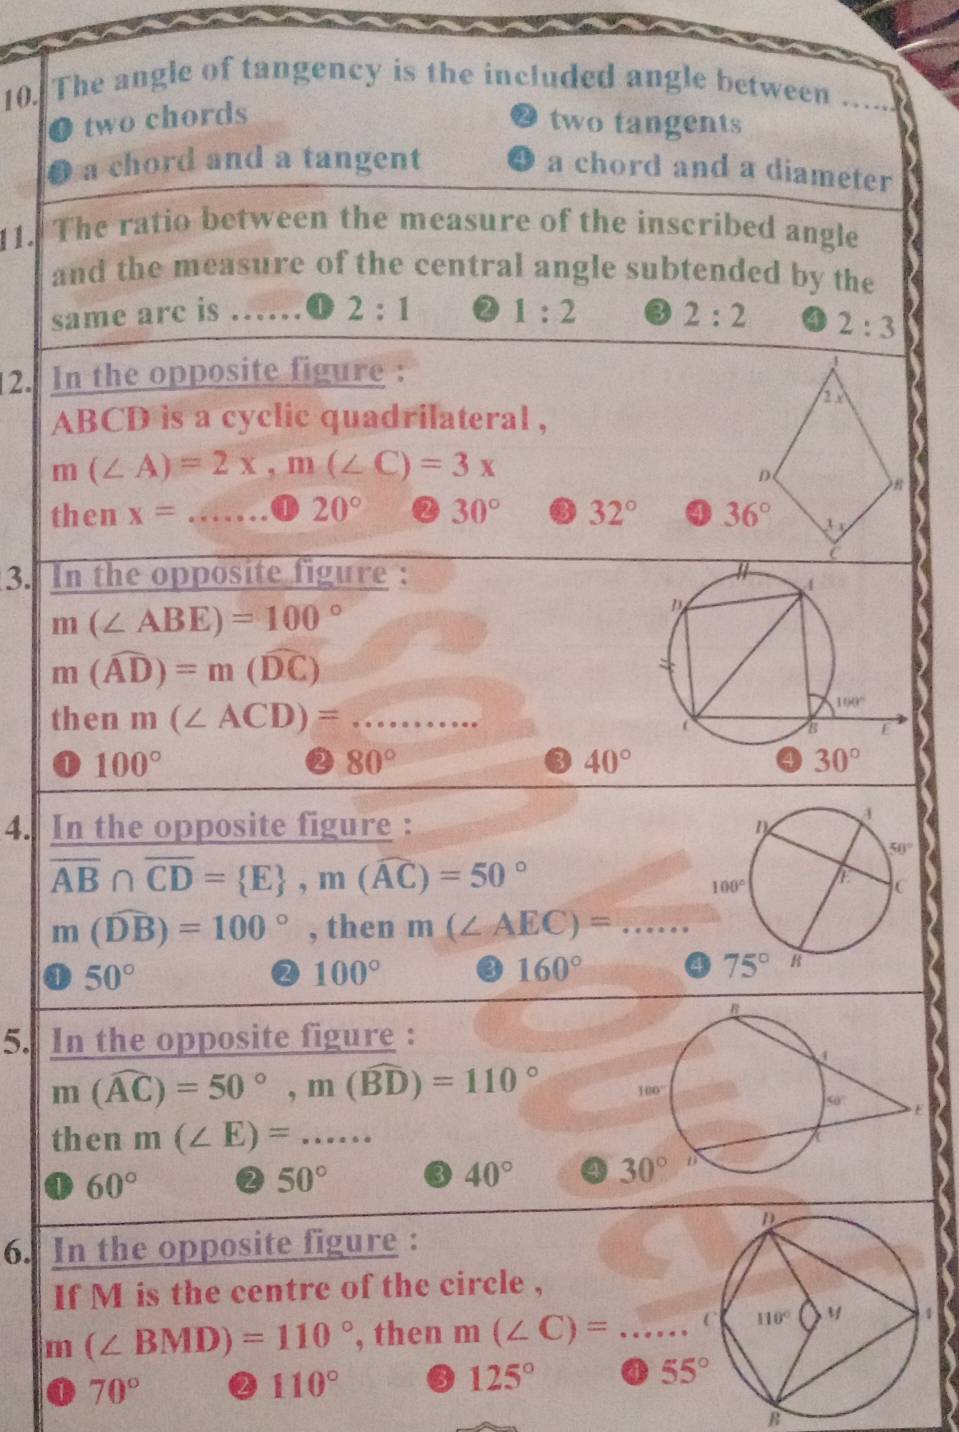 10. The angle of tangency is the included angle between ......
❶ two chords ❷ two tangents
❸ a chord and a tangent ❹ a chord and a diameter
11. The ratio between the measure of the inscribed angle
and the measure of the central angle subtended by the
same arc is ...... ❶ 2 : 1 ❷ 1 : 2 ❸ 2 : 2 ❹ 2 : 3
12. In the opposite figure :
ABCD is a cyclic quadrilateral ,
m (∠ A) = 2 x , m (∠ C) = 3 x
then x = ....... ❶ 20° ❷ 30° ❸ 32° ❹ 36°
A
2 x
D
B
3 x
C
3. In the opposite figure :
m (∠ ABE) = 100 °
m (A͡D) = m (D͡C)
then m (∠ ACD) = ...........
❶ 100° ❷ 80° ❸ 40° ❹ 30°
A
D
100°
C
B
E
4. In the opposite figure :
A̅B̅ ∩ C̅D̅ = {E} , m (A͡C) = 50 °
m (D͡B) = 100 ° , then m (∠ AEC) = ......
❶ 50° ❷ 100° ❸ 160° ❹ 75°
A
D
50°
E
C
100°
B
5. In the opposite figure :
m (A͡C) = 50 ° , m (B͡D) = 110 °
then m (∠ E) = ......
❶ 60° ❷ 50° ❸ 40° ❹ 30°
B
A
100°
50°
E
C
D
6. In the opposite figure :
If M is the centre of the circle ,
m (∠ BMD) = 110 °, then m (∠ C) = ......
❶ 70° ❷ 110° ❸ 125° ❹ 55°
D
C
110°
M
A
B